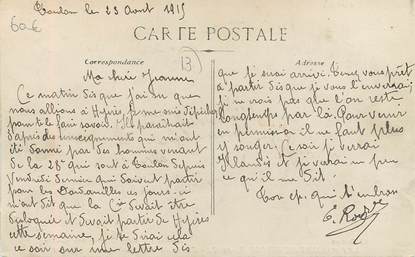 Toulon le 23 Avril 1915
60 €
CARTE POSTALE
Correspondance
13
Adresse
Ma chère Jeanne
Ce matin dès que j'ai su que
nous allions à Hyères, je me suis dépêché
pour te le faire savoir. Il paraitrait
d'après des renseignements qui m'ont
été donné par des hommes venant
de la 28e qui sont à Toulon depuis
Vendredi dernier qui doivent partir
pour les Dardanelles ces jours-ci
m'ont dit que la Cie devait être
disloquée et devait partir de Hyères
cette semaine, je te dirai cela
ce soir sur une lettre dès
que je serai arrivé. Tenez vous prêt
à partir dès que je vous l'enverrai;
je ne crois pas que l'on reste
longtemps par là. Pour venir
en permission il ne faut plus
y songer. Ce soir je verrai
et je verrai un peu
ce qu'il me dit.
Ton ep. qui t'embras